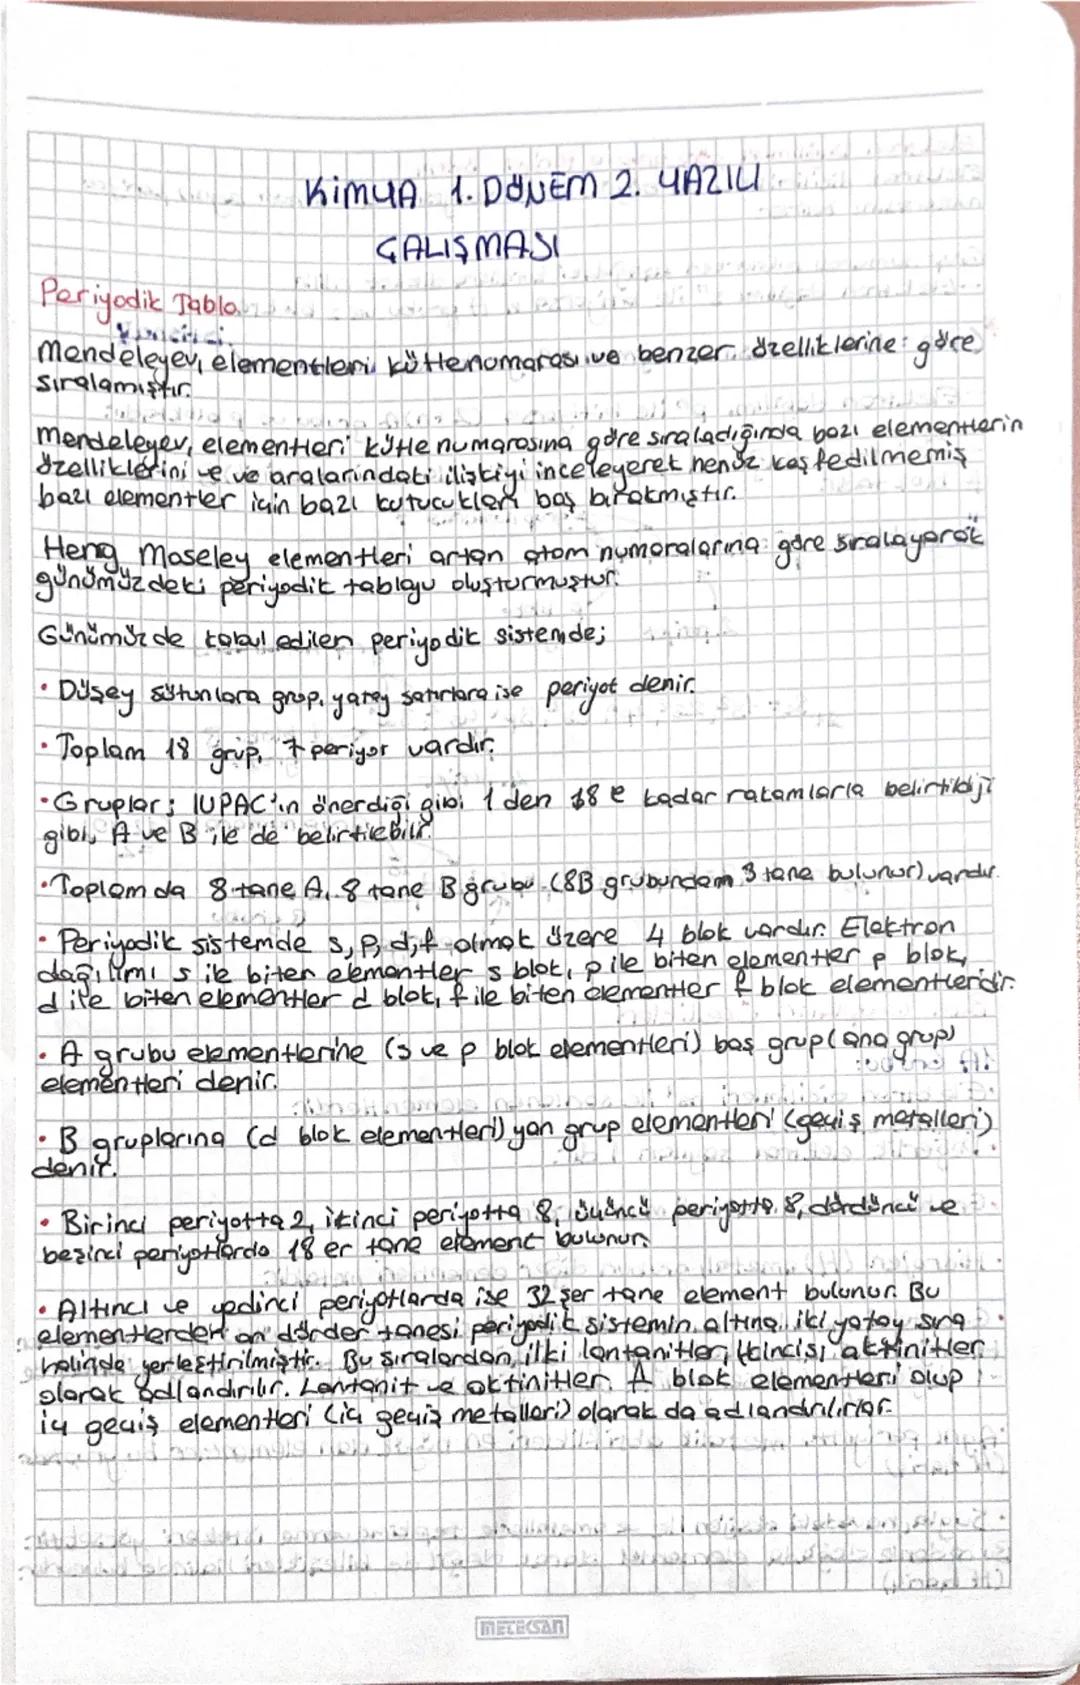 KİMYA 1. DÖNEM 2. YAZILI
ÇALIŞMASI
Periyodik Tablo
Mendeleyev, elementleri kütle numarası ve benzer özelliklerine göre
sıralamıştır.
Mendeleyev, elementleri kütle numarasına göre sıraladığında bazı elementlerin
özelliklerini ve ve aralarındaki ilişkiyi inceleyerek henüz keşfedilmemiş
bazı elementler için bazı kutucukları boş bırakmıştır.
Henry Moseley elementleri artan atom numaralarına göre sıralayarak
günümüzdeki periyodik tabloyu oluşturmuştur.
Günümüzde kabul edilen periyodik sistemde;
• Düşey sütunlara grup, yatay satırlara ise periyot denir.
• Toplam 18 grup, 7 periyot vardır.
• Gruplar; IUPAC'ın önerdiği gibi 1 den 18 e kadar rakamlarla belirtildiği
gibi, A ve B ile de belirtilebilir.
• Toplamda 8 tane A, 8 tane B grubu (8B grubundam 3 tane bulunur) vardır.
• Periyodik sistemde s, p, d, f olmak üzere 4 blok vardır. Elektron
dağılımı s ile biten elementler s blok, p ile biten elementler p blok,
d ile biten elementler d blok, f ile biten elementler f blok elementleridir.
• A grubu elementlerine (s ve p blok elementleri) baş grup (ana grup)
elementleri denir.
• B gruplarına (d blok elementleri) yan grup elementleri (geçiş metalleri)
denir.
• Birinci periyotta 2, ikinci periyotta 8, üçüncü periyotta 8, dördüncü ve
beşinci periyotlarda 18 er tane element bulunur.
• Altıncı ve yedinci periyotlarda ise 32 şer tane element bulunur. Bu
elementlerden on dörder tanesi periyodik sistemin altına iki yatay sıra
halinde yerleştirilmiştir. Bu sıralardan ilki lantanitler, ikincisi aktinitler
olarak adlandırılır. Lantanit ve aktinitler A blok elementleri olup
iç geçiş elementleri (iç geçiş metalleri) olarak da adlandırılırlar.
METEKSAN